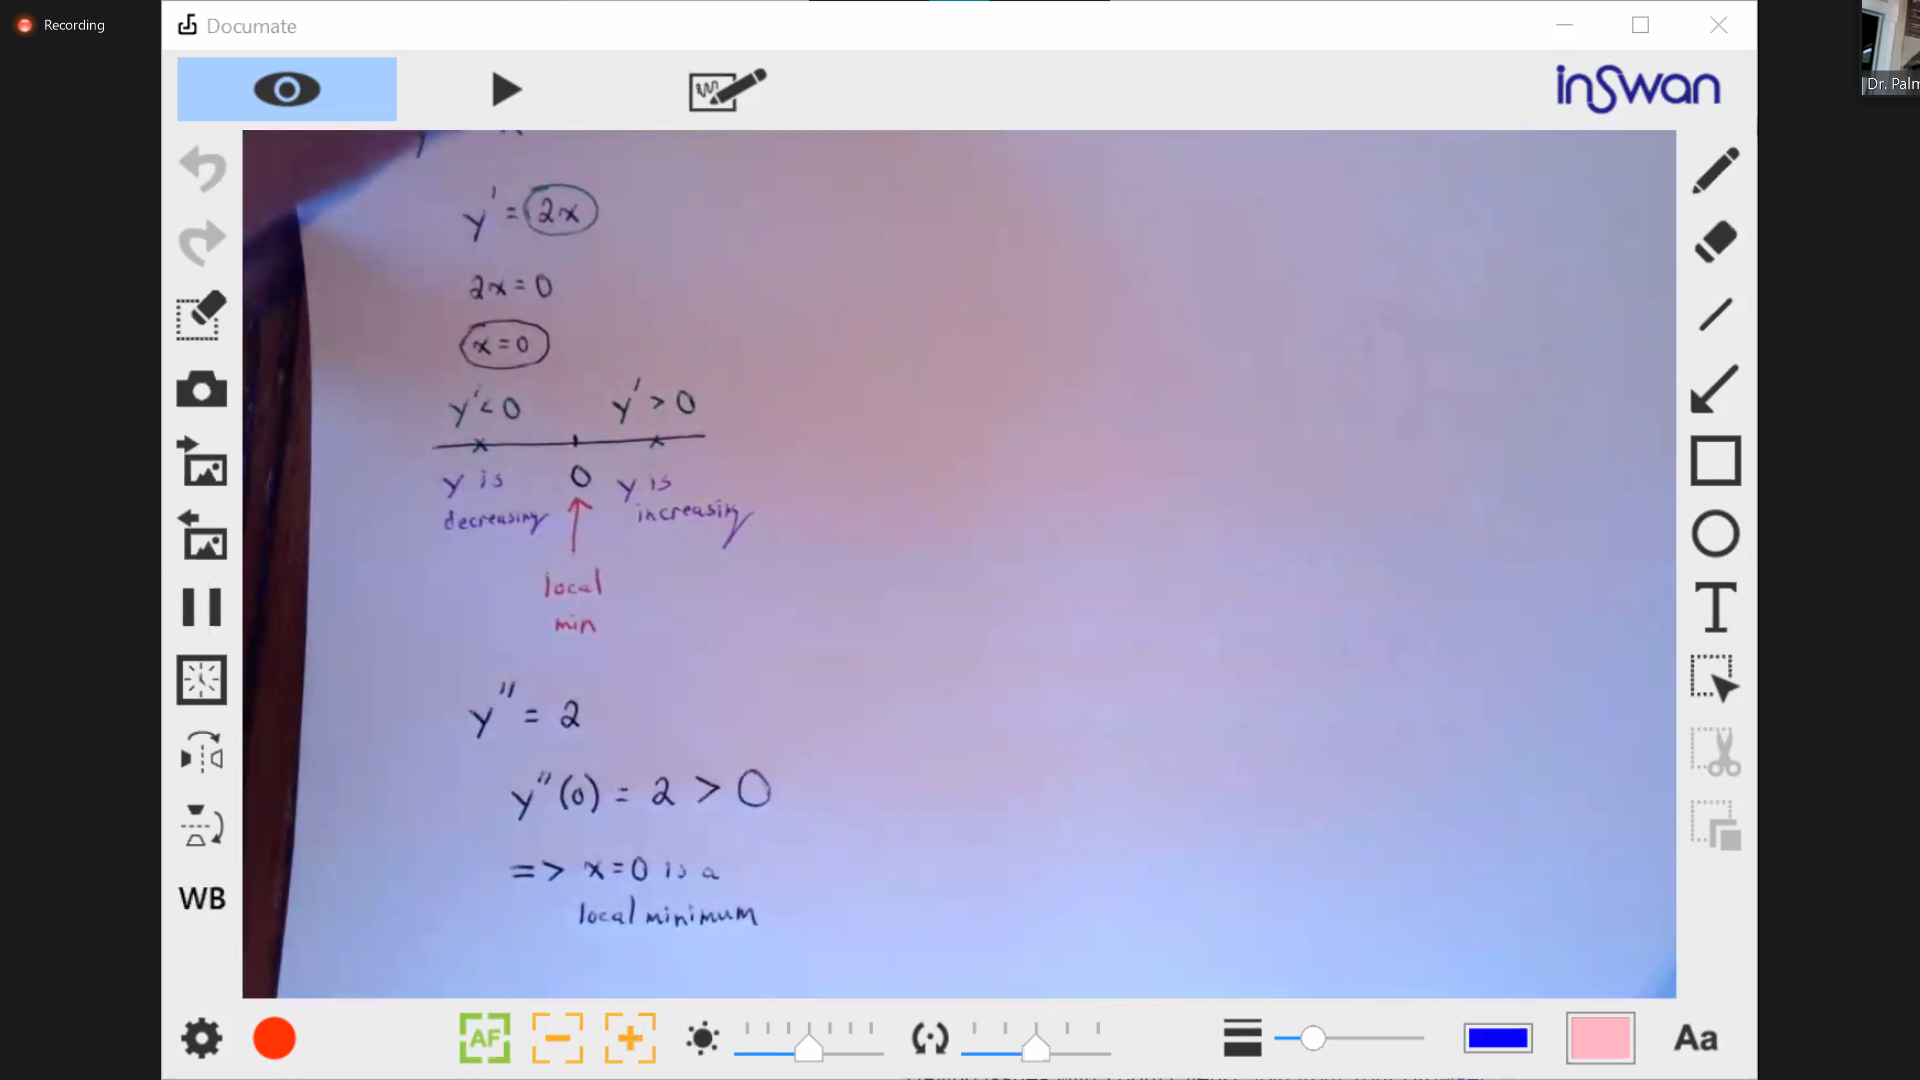 Recording
Documate
inSwan
Dr. Palm
y' = 2x
2x = 0
x = 0
y' < 0 y' > 0
y is 0 y is
decreasing increasing
local
min
y'' = 2
y''(0) = 2 > 0
=> x = 0 is a
local minimum
WB
T
AF
Aa